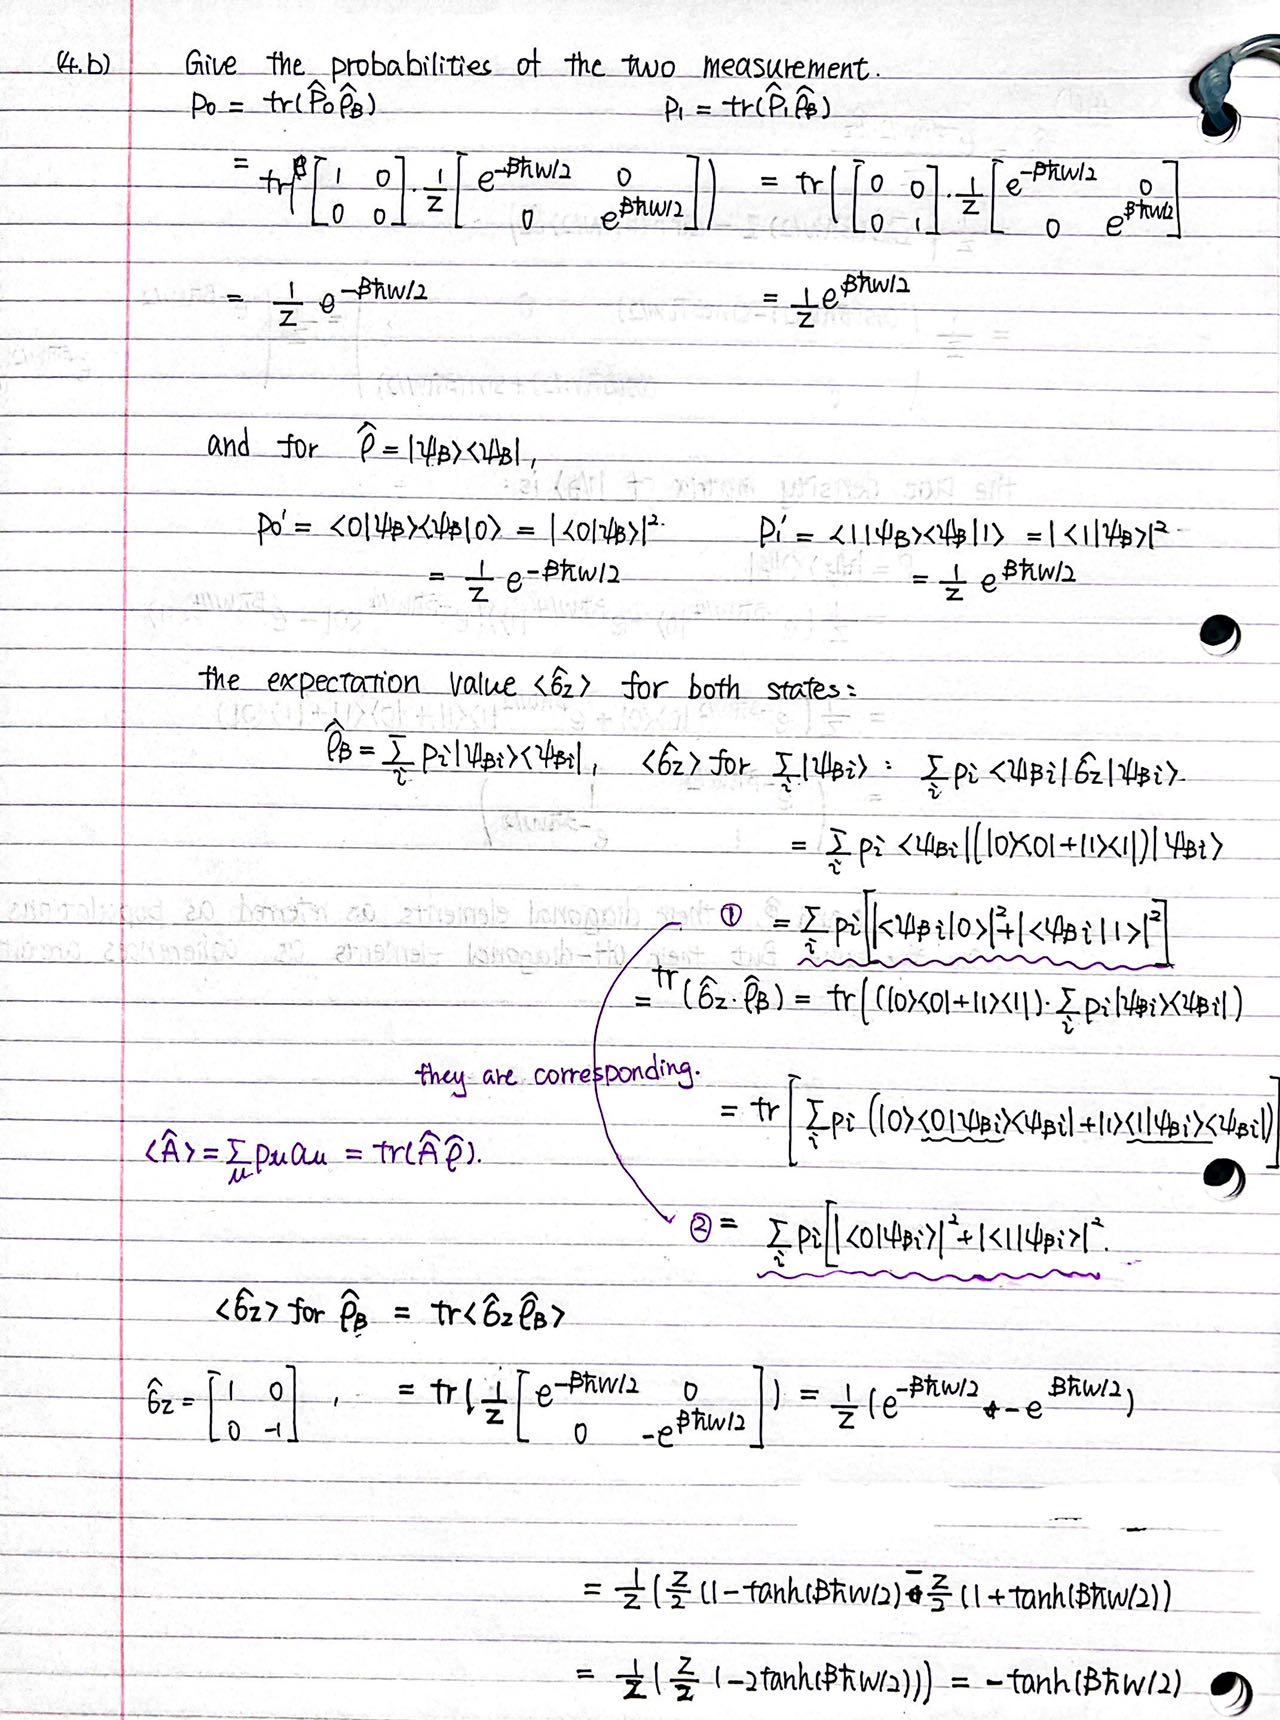 (4.b) Give the probabilities of the two measurement.
p0 = tr(P̂0 ρ̂B) p1 = tr(P̂1 ρ̂B)
= tr([1 0; 0 0] · 1/Z [e^-βħw/2 0; 0 e^βħw/2]) = tr([0 0; 0 1] · 1/Z [e^-βħw/2 0; 0 e^βħw/2]
= 1/Z e^-βħw/2 = 1/Z e^βħw/2
and for ρ̂ = |ψB><ψB|,
p0' = <0|ψB><ψB|0> = |<0|ψB>|². p1' = <1|ψB><ψB|1> = |<1|ψB>|².
= 1/Z e^-βħw/2 = 1/Z e^βħw/2
the expectation value <σ̂z> for both states:
ρ̂B = Σi pi|ψBi><ψBi|, <σ̂z> for Σi|ψBi> : Σi pi <ψBi|σ̂z|ψBi>.
= Σi pi <ψBi|(|0><0|+|1><1|)|ψBi>
① = Σi pi[|<ψBi|0>|²+|<ψBi|1>|²]
= tr(σ̂z·ρ̂B) = tr((|0><0|+|1><1|)·Σi pi|ψBi><ψBi|)
they are corresponding.
= tr[Σi pi (|0><0|ψBi><ψBi|+|1><1|ψBi><ψBi|)]
<Â> = Σμ pμaμ = tr(Âρ̂).
② = Σi pi[|<0|ψBi>|²+|<1|ψBi>|².
<σ̂z> for ρ̂B = tr<σ̂zρ̂B>
σ̂z = [1 0; 0 -1] , = tr(1/Z [e^-βħw/2 0; 0 -e^βħw/2]) = 1/Z (e^-βħw/2 - e^βħw/2)
= 1/Z (Z/2 (1-tanh(βħw/2) - Z/2 (1+tanh(βħw/2))
= 1/Z (Z/2 (-2tanh(βħw/2))) = -tanh(βħw/2)